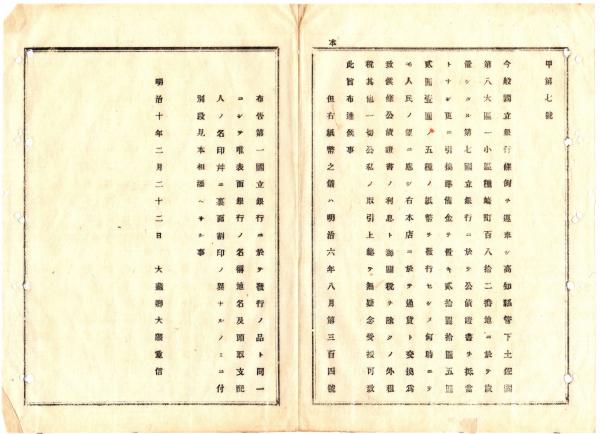 本
甲第七號
今般國立銀行條例ヲ遵奉シ高知縣管下土佐國
第八大區一小區種崎町百八拾二番地ニ於テ設
置シタル第七國立銀行ニ於テ公債證書ヲ抵當
トナシ更ニ引換準備金ヲ置キ貳拾圓拾圓五圓
貳圓壹圓ノ五種ノ紙幣ヲ發行セシメ何時ニテ
モ人民ノ望ニ應シ右本店ニ於テ通貨ト交換爲
致候條公債證書ノ利息ト海關税ヲ除クノ外租
税其他一切公私ノ取引上總テ無疑念受授可致
此旨布達候事
但右紙幣之儀ハ明治六年八月第三百四號
布告第一國立銀行ニ於テ發行ノ品ト同一
ニシテ唯表面銀行ノ名稱地名及頭取支配
人ノ名印并ニ裏面割印ノ異ナルノミニ付
別段見本相添ヘサル事
明治十年二月二十二日 大藏卿大隈重信